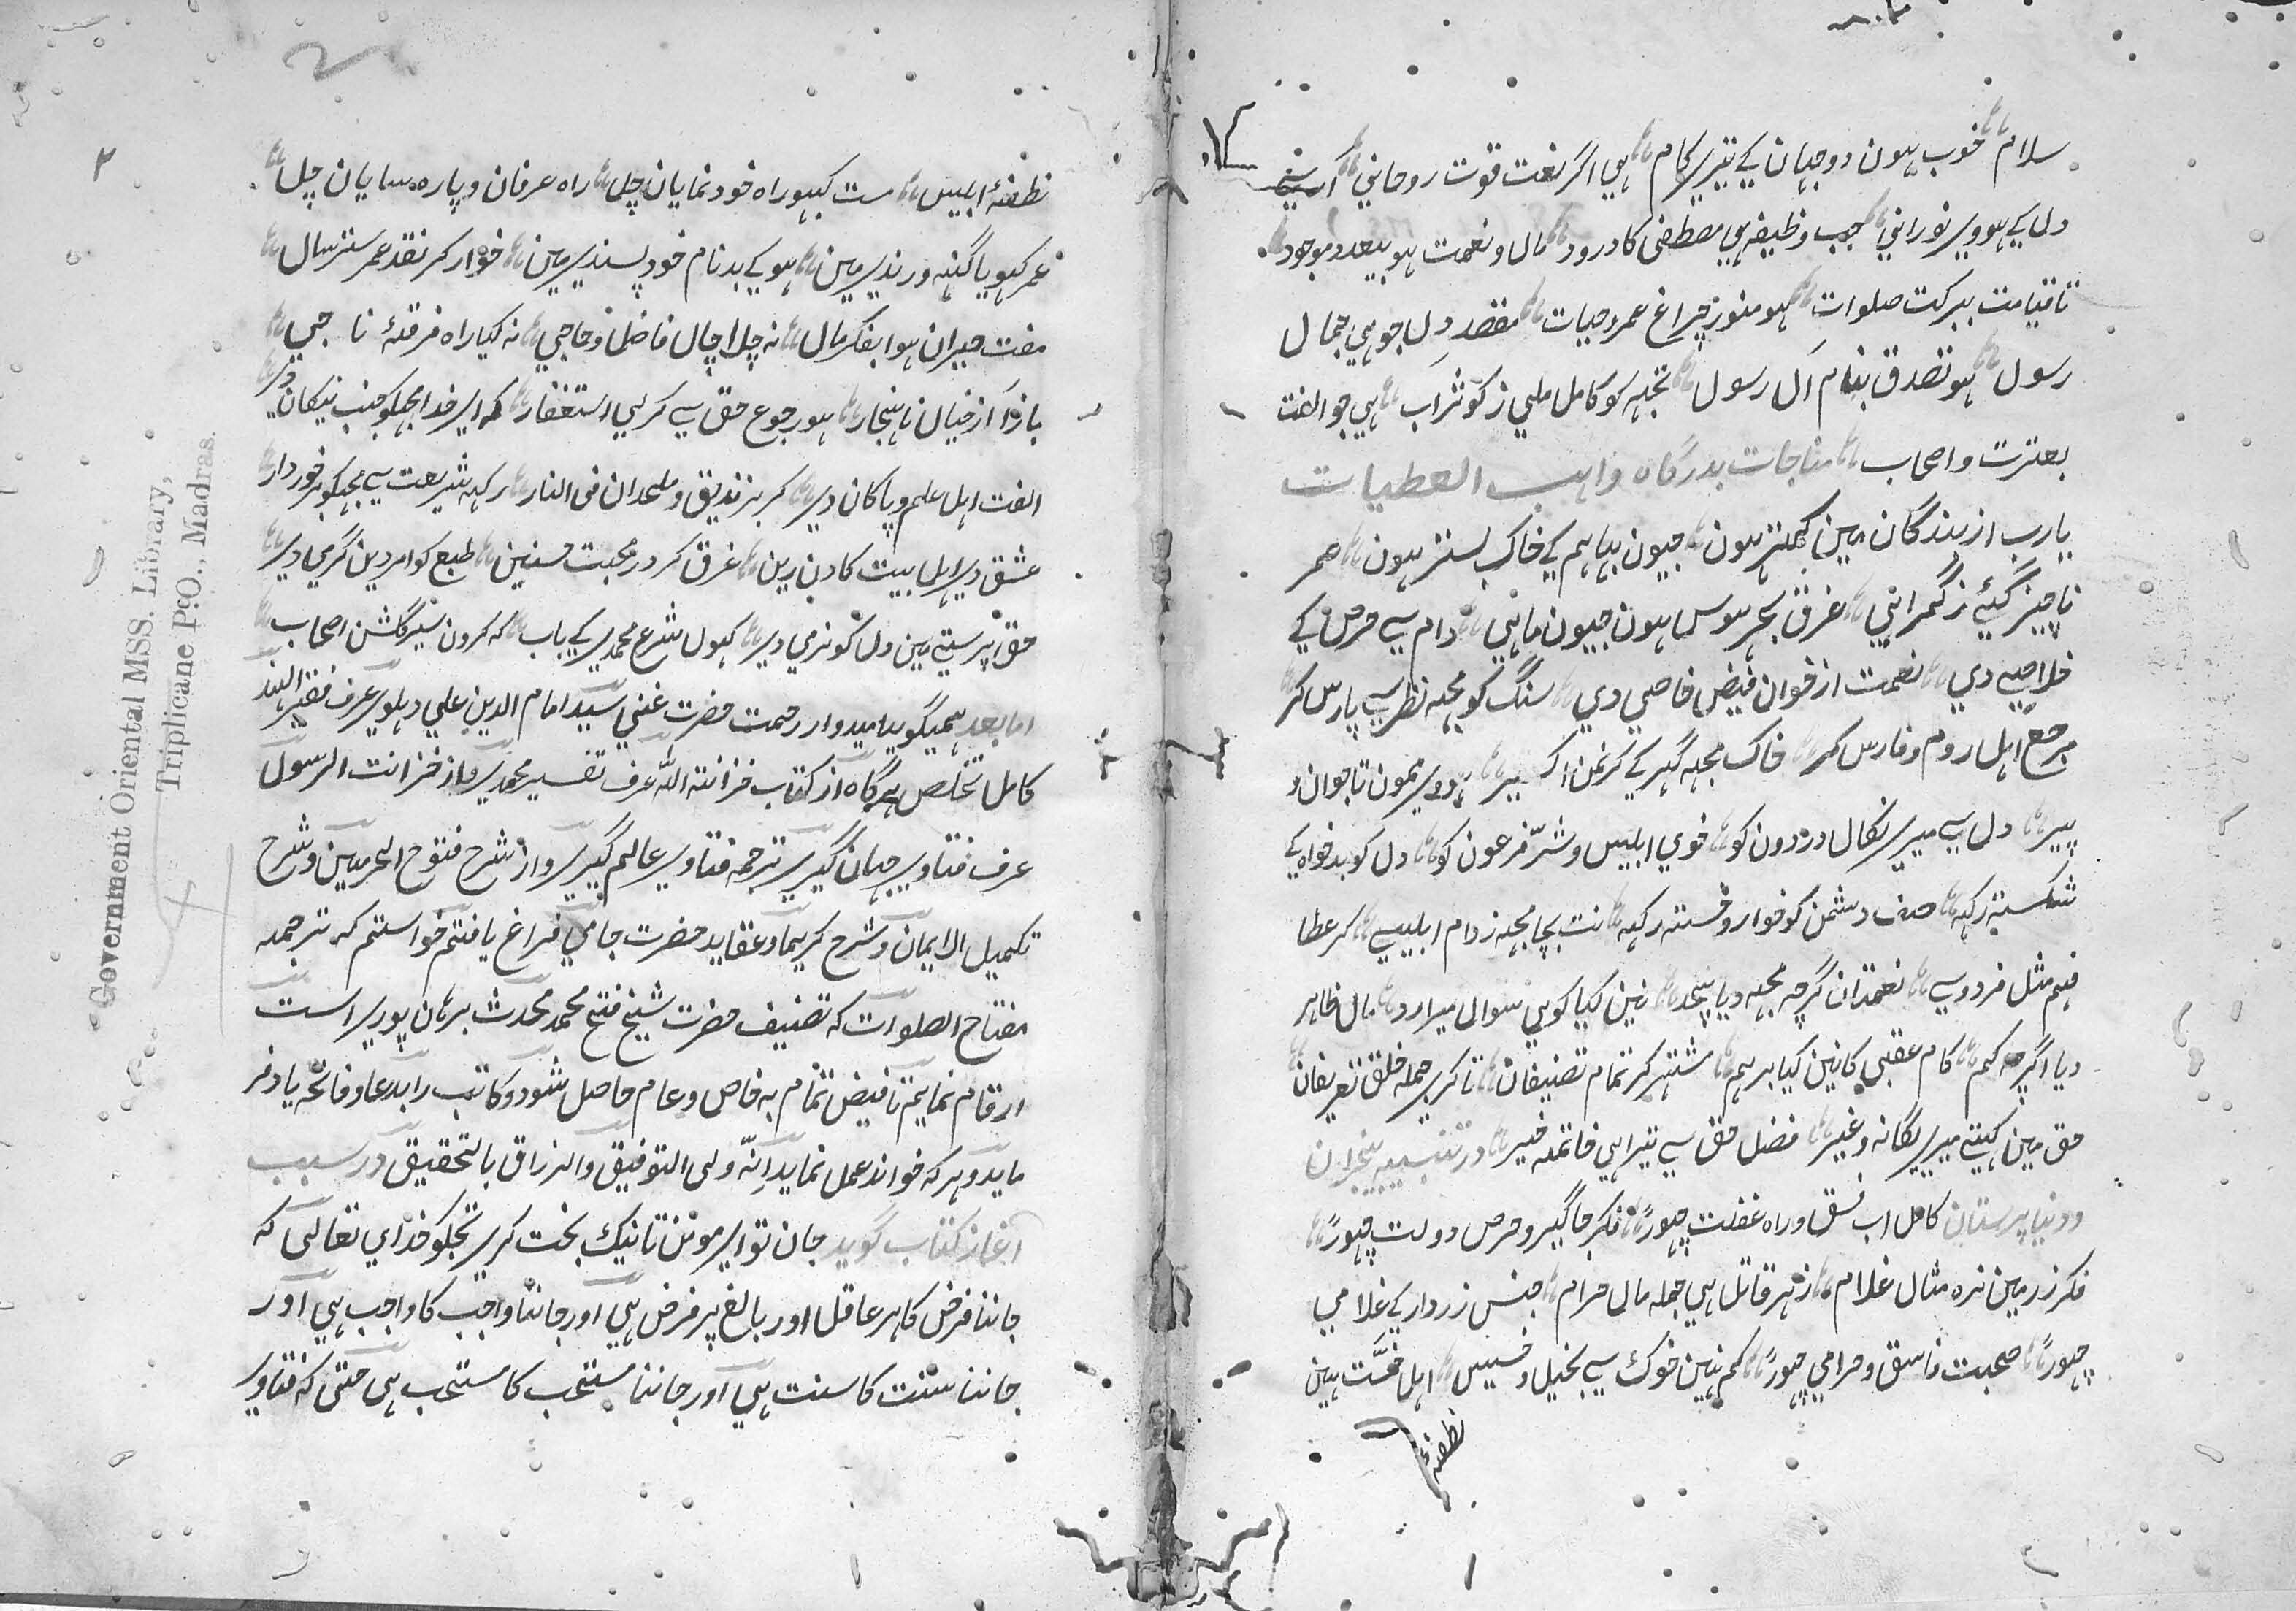 سلام خوب ہون دو جہان کے تیرے کام ہی اگر نعت قوت روحانی
دل کے ہووے نورانی جب وظیفہ ہی مصطفی کا درود مال و نعمت ہو بیعدد موجود
تا قیامت ببرکت صلوات ہو منور چراغ عمر و حیات مقصد دل جو ہی جمال
رسول ہو تصدق بنام آل رسول تجہہ کو کامل ملی ز کوثر آب ہی جو الفت
بعترت و اصحاب مناجات بدرگاہ واہب العطیات
یارب از بندگان مین کمتر ہون جیون بہایم کے خاک بستر ہون
ناچیز گئے ز گمراہی غرق بحر ہوس ہون جیون ماہی دام سے حرص کے
خلاصی دی نعمت از خوان فیض خاصی دی سنگ کو مجہہ نظر سے پارس کر
مرجع اہل روم و فارس کر خاک مجہہ گہر کے کر اکسیر تا جوان و
پیر دل سے میرے نکال دردون کو خوی ابلیس و شر فرعون کو دل کو بدخواہ کے
شکستہ رکہہ صف دشمن کو خوار و خستہ رکہہ نت بچا مجہہ ز دام ابلیسے کر عطا
فہم مثل فردوسے نعمتان گرچہ مجہہ دیا بیحد نین کیا کوہی سوال میرا رد مال ظاہر
دیا اگرچہ کم کام عقبی کا نین کیا برہم مشتہر کر تمام تصنیفان تا کرے جملہ خلق تعریفان
حق مین کیتے میرے یگانہ و غیر فضل حق سے تیرا ہی خاتمہ خیر در تنبیہ بیخبران
و دنیا پرستان کامل اب فسق اور راہ غفلت چہور فکر جاگیر و حرص دولت چہور
فکر زر مین نرہ مثال غلام زہر قاتل ہی جملہ مال حرام جنس زردار کے غلامی
چہور صحبت فاسق و حرامی چہور کم نہین خوک سے بخیل و خسیس اہل خست ہین
نطفۂ
نطفۂ ابلیس مت کبہو راہ خود نمایان چل راہ عرفان و پارہ سایان چل
عمر کہویا گنہ و رندی مین ہو کے بدنام خود پسندی مین خوار کر نقد عمر ستر سال
مفت حیران ہوا بفکر مال نہ چلا چال فاضل و حاجی نہ کیا راہ فرقۂ ناجی
باز آ از خیال ناہنجار ہو رجوع حق سے کر لی استغفار کہ اے خدا مجہکو حب نیکان دے
الفت اہل علم و پاکان دے کر بزندیق و ملحدان فی النار رکہہ شریعت سے مجہکو برخوردار
عشق دے اہل بیت کا دن رین غرق کر در محبت حسنین طبع کو امر دین گرمی دے
حق پرستے مین دل کو نرمی دے کہول شرع محمدی کے باب کہ کرون سیر گلشن اصحاب
اما بعد ہمیگوید امیدوار رحمت حضرت غنی سید امام الدین علی دہلوی عرف فقیر الہند
کامل تخلص ہرگاہ از کتاب خزانۃ اللہ عرف تفسیر محمدی و از خزانت الرسول
عرف فتاوے جہانگیری ترجمہ فتاوے عالمگیری و از شرح فتوح الحرمین و شرح
تکمیل الایمان و شرح کریما و عقاید حضرت جامی فراغ یافتم خواستم کہ ترجمہ
مفتاح الصلوات کہ تصنیف حضرت شیخ فتح محمد محدث برہان پوری است
ارقام نمایم تا فیض تمام بہ خاص و عام حاصل شود و کاتب را بدعا و فاتحہ یاد فر
ماید و ہر کہ خواند عمل نماید انّہ ولی التوفیق و الرزاق بالتحقیق در سبب
آغاز کتاب گوید جان تو اے مومن تا نیک بخت کرے تجکو خدای تعالی کہ
جاننا فرض کا ہر عاقل اور بالغ پر فرض ہی اور جاننا واجب کا واجب ہی اور
جاننا سنت کا سنت ہی اور جاننا مستحب کا مستحب ہی حتی کہ فتاوے
۲
Government Oriental MSS. Library,
Triplicane P.O., Madras.